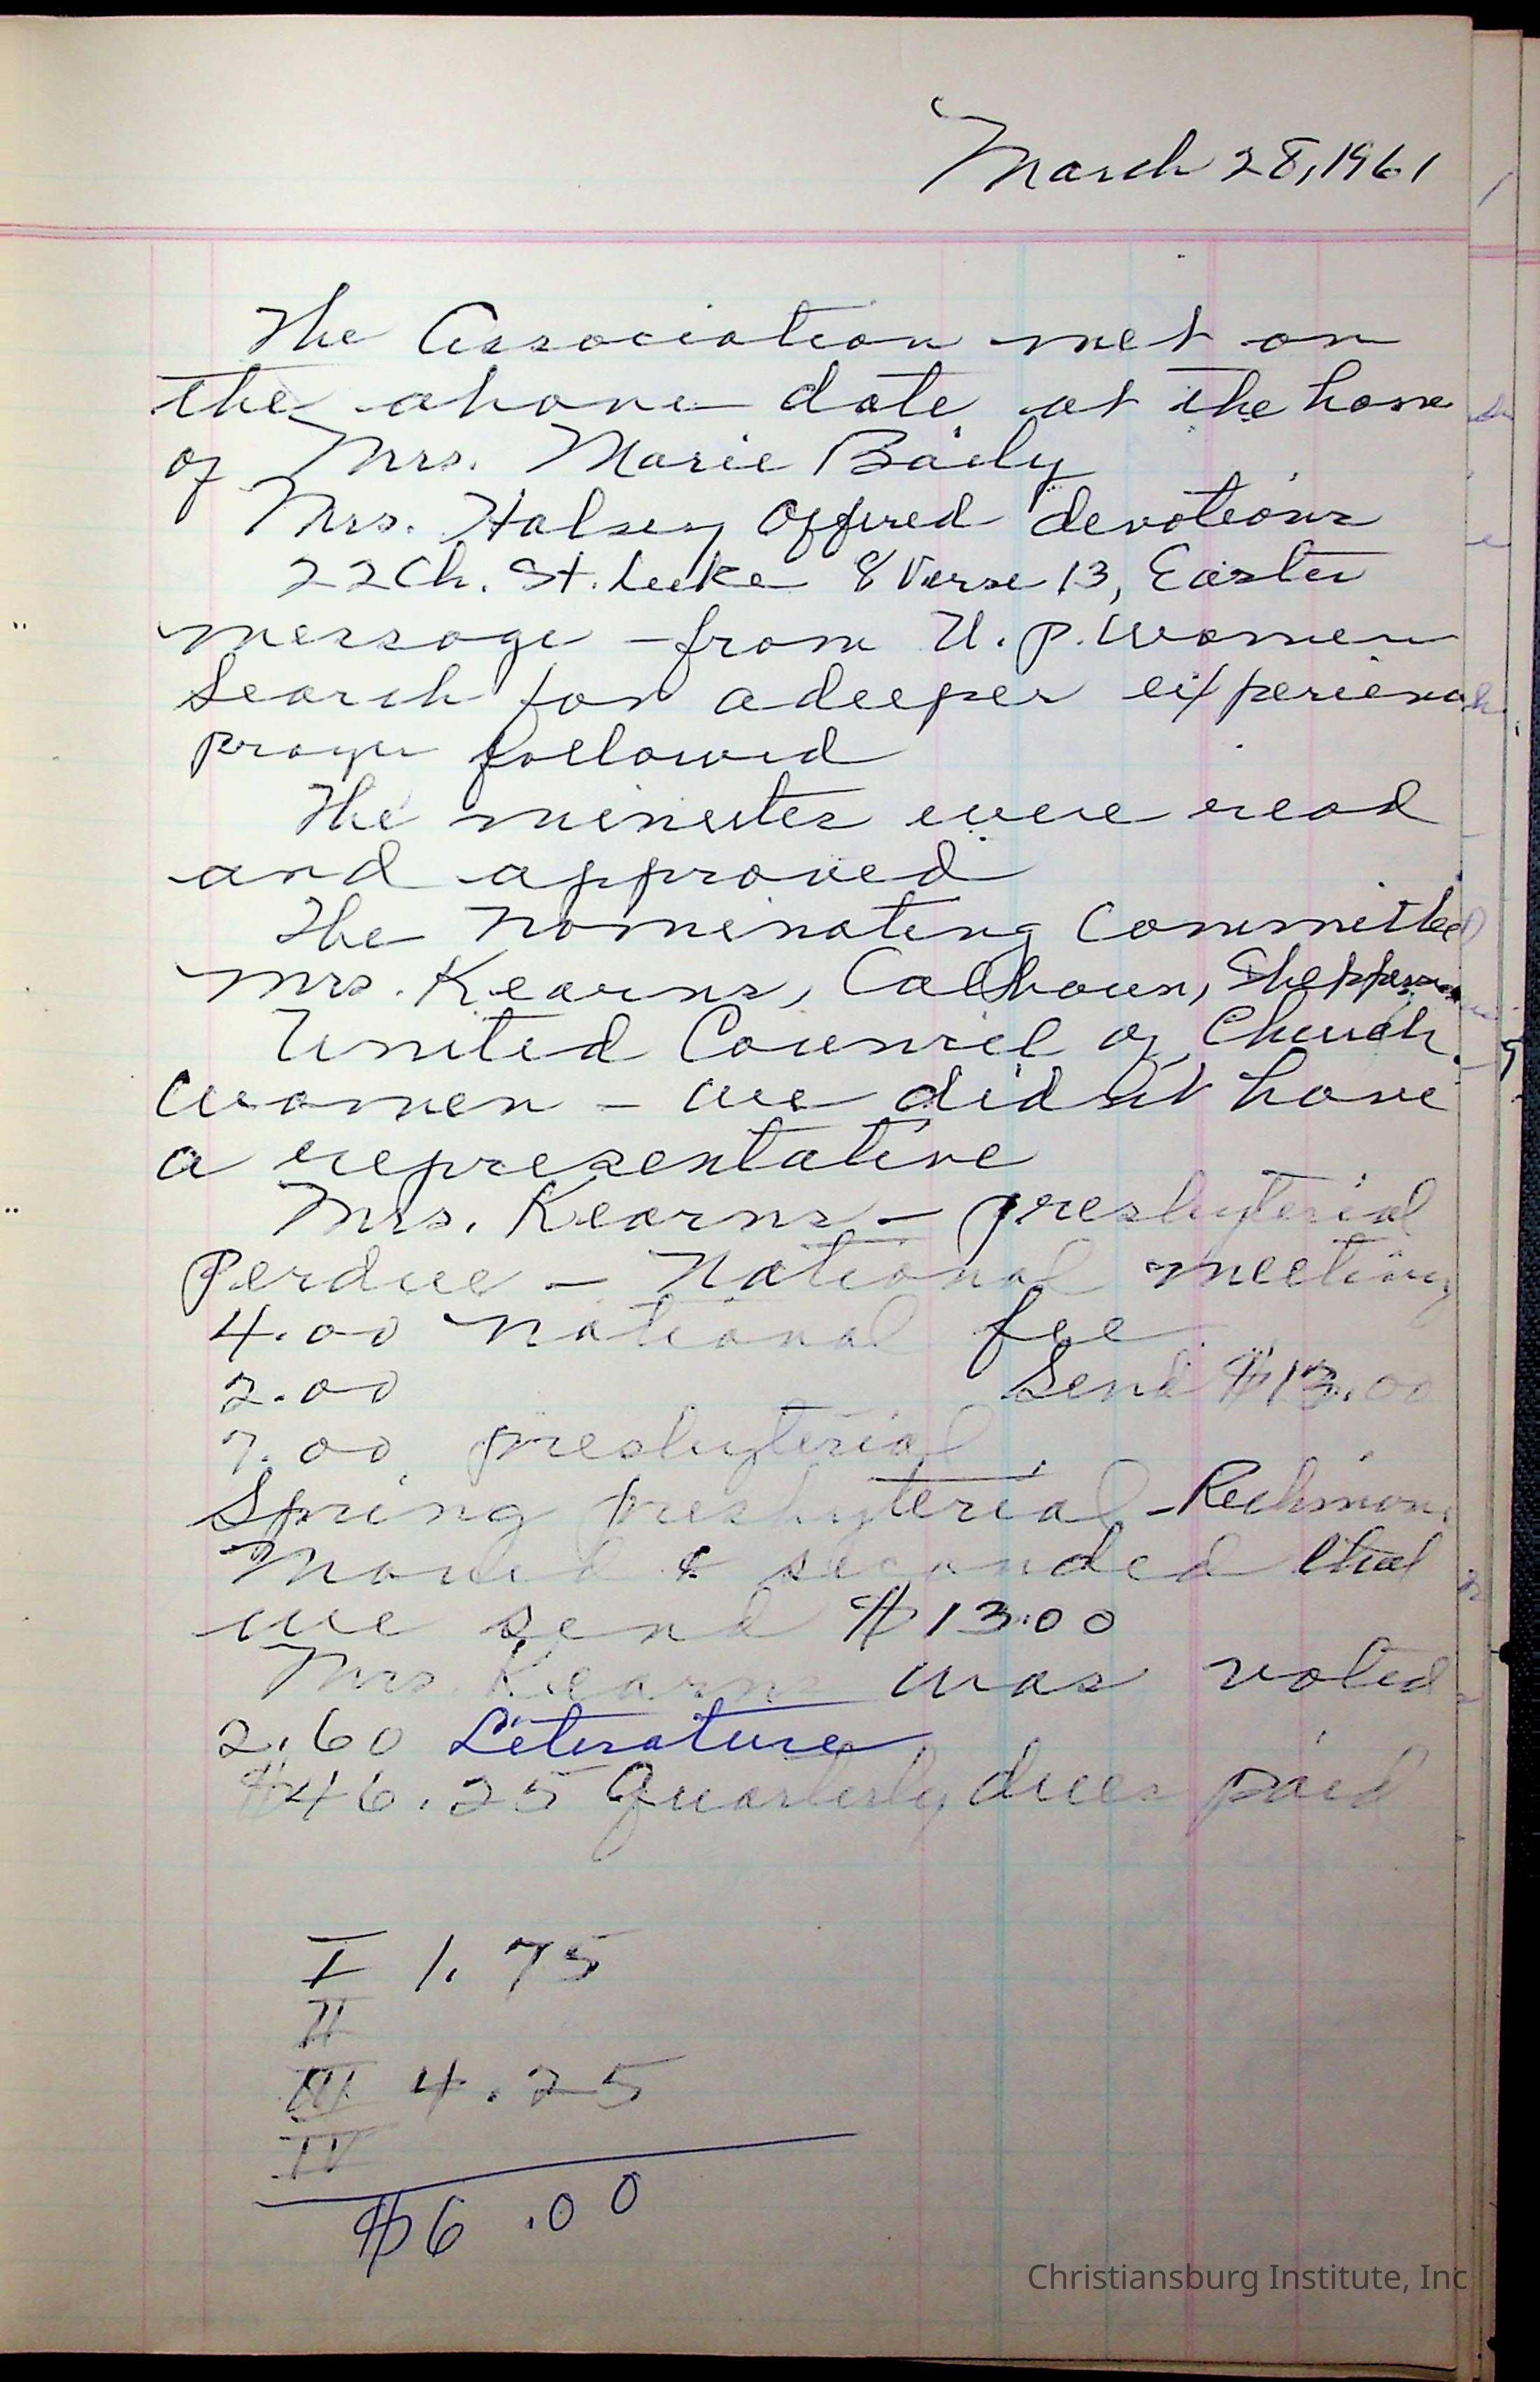 March 28, 1961
The Association met on
the above date at the home
of Mrs. Marie Baily
Mrs. Halsey offered devotions
22 Ch. St. Luke & Verse 13, Easter
message - from U. P. Women
Search for a deeper experience
prayer followed
The minutes were read
and approved
The nominating Committee
Mrs. Kearns, Calhoun,
United Council of Church
Women - we didn't have
a representative
Mrs. Kearns - presbyterial
Perdue - National meeting
4.00 national fee
2.00 Send $13.00
7.00 presbyterial
Spring presbyterial - Richmon
Moved & seconded that
we send $13.00
Mrs. Kearns was voted
2.60 Literature
$46.25 Quarterly dues paid
I 1.75
II
III 4.25
IV
$6.00
Christiansburg Institute, Inc